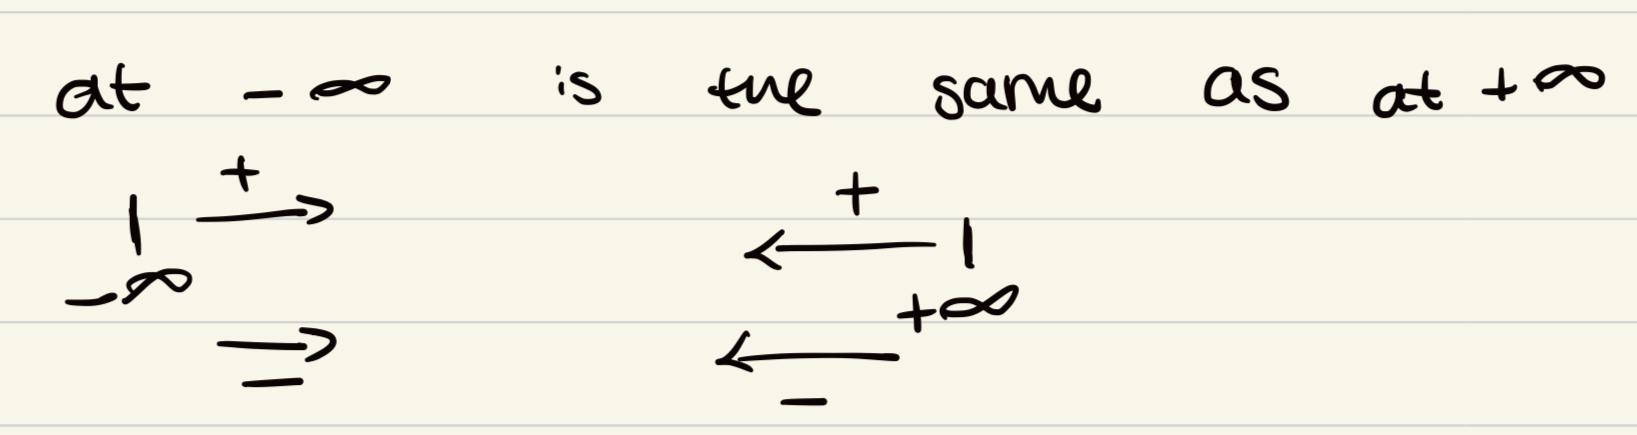 at -∞ is the same as at +∞
+ +
| → ← |
-∞ +∞
→ ←
- -